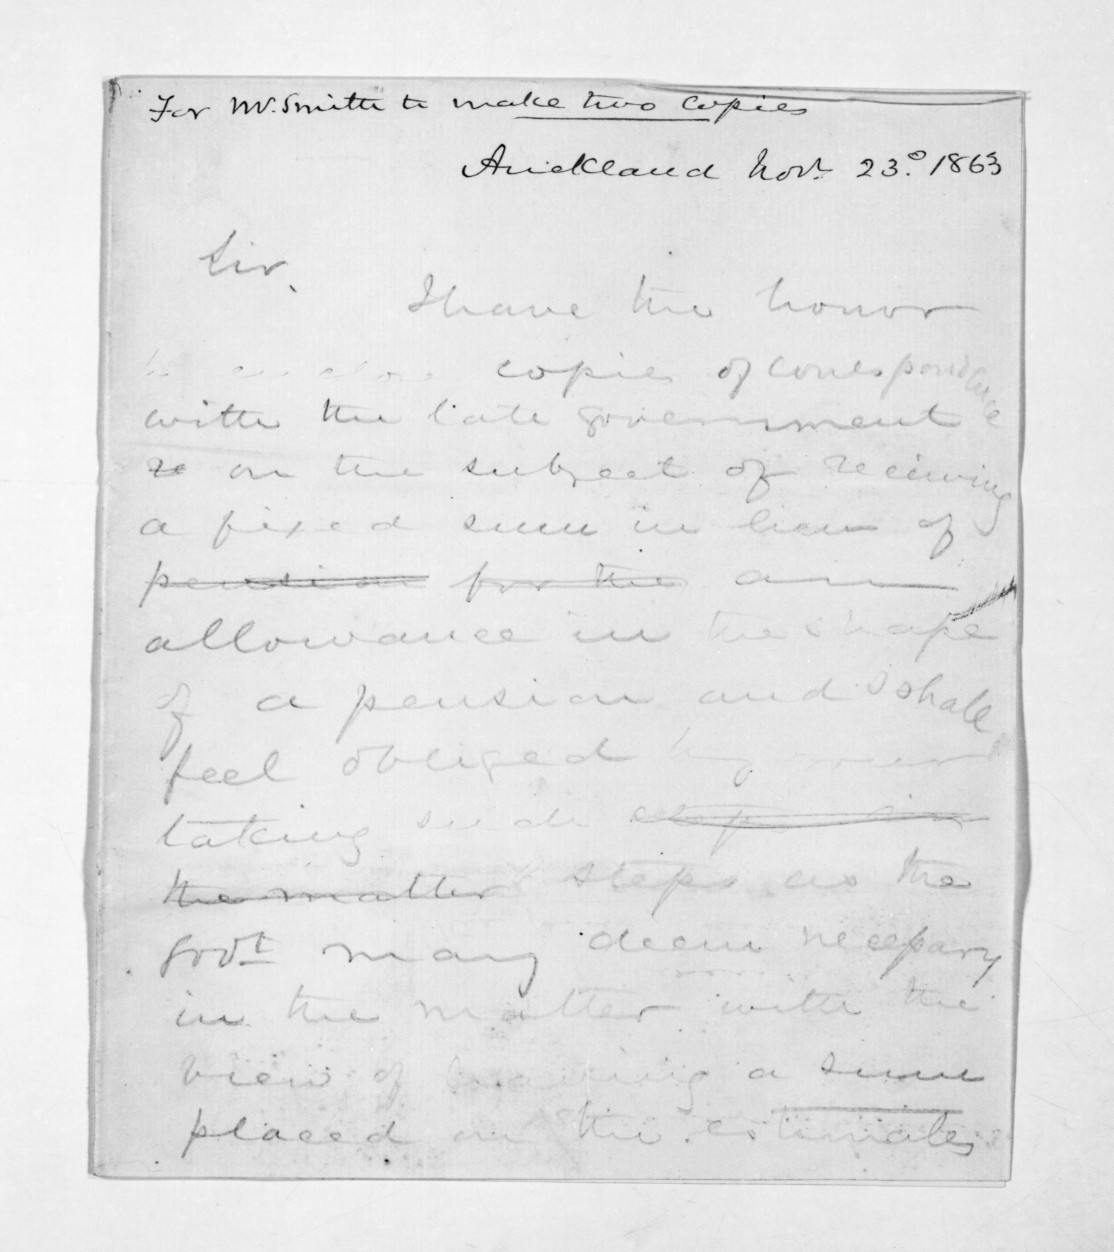 For Mr. Smith to make two copies
Auckland Novr. 23d. 1863
Sir.
I have the honor
to enclose copies of correspondence
with the late government
re on the subject of receiving
a fixed sum in lieu of
pension for the an
allowance in the shape
of a pension and I shall
feel obliged by your
taking such steps in
the matter steps as the
Govt. may deem necessary
in the matter with the
view of having a sum
placed on the estimates